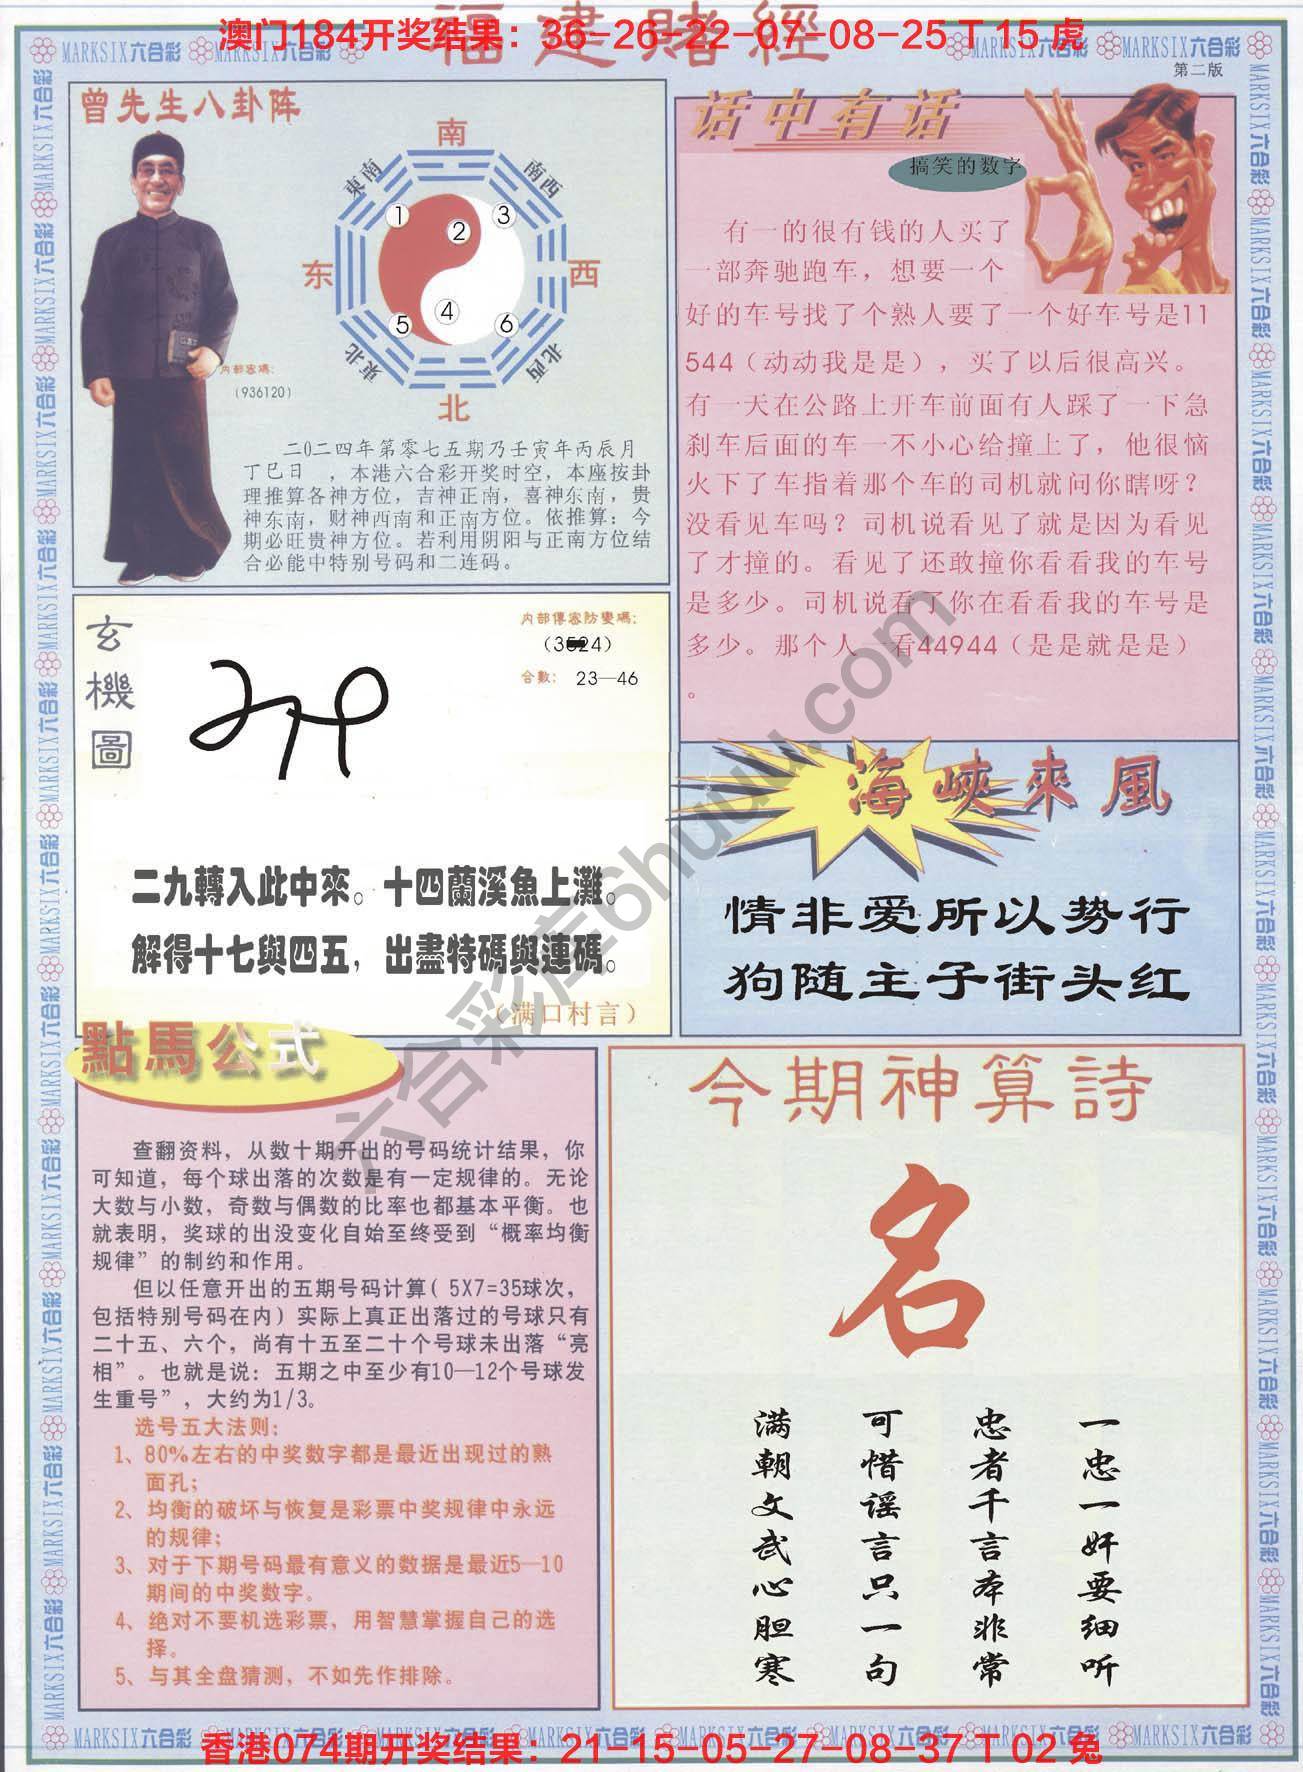 福建賭經
澳门184开奖结果：36-26-22-07-08-25 T 15 虎
MARKSIX六合彩
第二版
曾先生八卦阵
南
東南
南西
东
西
東北
北西
北
1
2
3
4
5
6
内部密碼：
（936120）
二0二四年第零七五期乃壬寅年丙辰月
丁巳日 ，本港六合彩开奖时空，本座按卦
理推算各神方位，吉神正南，喜神东南，贵
神东南，财神西南和正南方位。依推算：今
期必旺贵神方位。若利用阴阳与正南方位结
合必能中特别号码和二连码。
话中有话
搞笑的数字
有一的很有钱的人买了
一部奔驰跑车，想要一个
好的车号找了个熟人要了一个好车号是11
544（动动我是是），买了以后很高兴。
有一天在公路上开车前面有人踩了一下急
刹车后面的车一不小心给撞上了，他很恼
火下了车指着那个车的司机就问你瞎呀？
没看见车吗？司机说看见了就是因为看见
了才撞的。看见了还敢撞你看看我的车号
是多少。司机说看了你在看看我的车号是
多少。那个人一看44944（是是就是是）
。
玄機圖
内部傳密防變碼：
合數： 23—46
二九轉入此中來。十四蘭溪魚上灘。
解得十七與四五，出盡特碼與連碼。
（满口村言）
海峽來風
情非爱所以势行
狗随主子街头红
點馬公式
查翻资料，从数十期开出的号码统计结果，你
可知道，每个球出落的次数是有一定规律的。无论
大数与小数，奇数与偶数的比率也都基本平衡。也
就表明，奖球的出没变化自始至终受到“概率均衡
规律”的制约和作用。
但以任意开出的五期号码计算( 5X7=35球次，
包括特别号码在内）实际上真正出落过的号球只有
二十五、六个，尚有十五至二十个号球未出落“亮
相”。也就是说：五期之中至少有10—12个号球发
生重号”，大约为1/3。
选号五大法则：
1、80%左右的中奖数字都是最近出现过的熟
面孔；
2、均衡的破坏与恢复是彩票中奖规律中永远
的规律；
3、对于下期号码最有意义的数据是最近5—10
期间的中奖数字。
4、绝对不要机选彩票，用智慧掌握自己的选
择。
5、与其全盘猜测，不如先作排除。
今期神算詩
名
一忠一奸要细听
忠者千言本非常
可惜谣言只一句
满朝文武心胆寒
六合彩库6huuu.com
香港074期开奖结果：21-15-05-27-08-37 T 02 兔